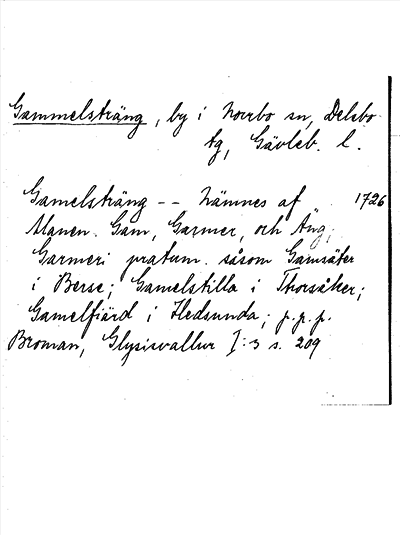 Gammelsträng, by i Norrbo sn, Delsbo
tg, Gävleb. l.
Gamelsträng -- Nämnes af 1726
Manen. Gam, Garmer, och Äng,
Garmeri pratum. såsom Gamsäter
i Berse; Gamelstilla i Thorsåker;
Gamelfiärd i Hedsunda; p.p.p.
Broman, Glysisvallur I:3 s. 209